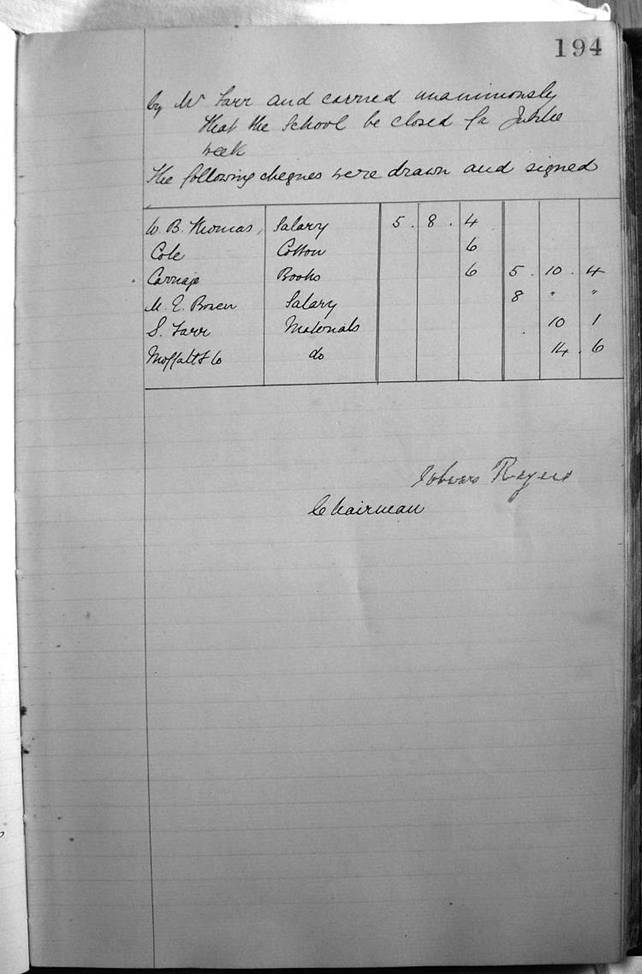 194
by Mr Farr and carried unanimously
that the School be closed for Jubilee
week
The following cheques were drawn and signed
W. B. Thomas, Salary 5 . 8 . 4
Cole Cotton 6
Carriage Books 6 5 . 10 . 4
M. E. Bowen Salary 8 " "
S. Farr Materials 10 1
Moffatt & Co do 14 . 6
Rogers
Chairman